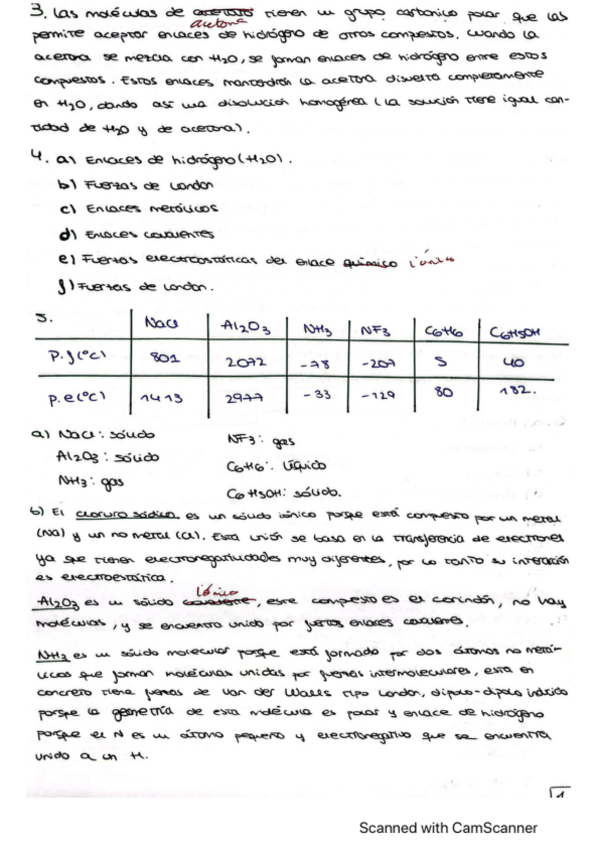 3. Las moléculas de acetona tienen un grupo carbonilo polar que las
permite aceptar enlaces de hidrógeno de otros compuestos. Cuando la
acetona se mezcla con H2O, se forman enlaces de hidrógeno entre estos
compuestos. Estos enlaces mantendrán la acetona disuelta completamente
en H2O, dando así una disolución homogénea (la solución tiene igual can-
tidad de H2O y de acetona).
4. a) Enlaces de hidrógeno (H2O).
b) Fuerzas de London
c) Enlaces metálicos
d) Enlaces covalentes
e) Fuerzas electrostáticas del enlace químico iónico
f) Fuerzas de London.
5. NaCl Al2O3 NH3 NF3 C6H6 C6H5OH
p.f (ºC) 801 2072 -78 -207 5 40
p.e (ºC) 1413 2977 -33 -129 80 182.
a) NaCl: sólido NF3: gas
Al2O3: sólido C6H6: líquido
NH3: gas C6H5OH: sólido.
b) El cloruro sódico es un sólido iónico porque está compuesto por un metal
(Na) y un no metal (Cl). Esta unión se basa en la transferencia de electrones
ya que tienen electronegatividades muy diferentes, por lo tanto su interacción
es electrostática.
Al2O3 es un sólido covalente iónico, este compuesto es el corindón, no hay
moléculas, y se encuentra unido por fuertes enlaces covalentes.
NH3 es un sólido molecular porque está formado por dos átomos no metá-
licos que forman moléculas unidas por fuerzas intermoleculares, esta en
concreto tiene fuerzas de Van der Walls tipo London, dipolo-dipolo inducido
porque la geometría de esta molécula es polar y enlace de hidrógeno
porque el N es un átomo pequeño y electronegativo que se encuentra
unido a un H.
1
Scanned with CamScanner